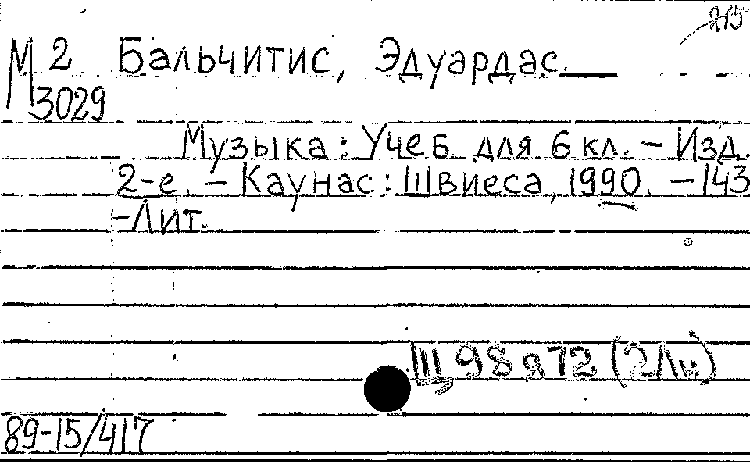 215
М 2 Бальчитис, Эдуардас
3029
Музыка: Учеб. для 6 кл. – Изд.
2-е. – Каунас: Швиеса, 1990. – 143
- Лит.
Щ 98 я 72 (2Ли)
89-15/417